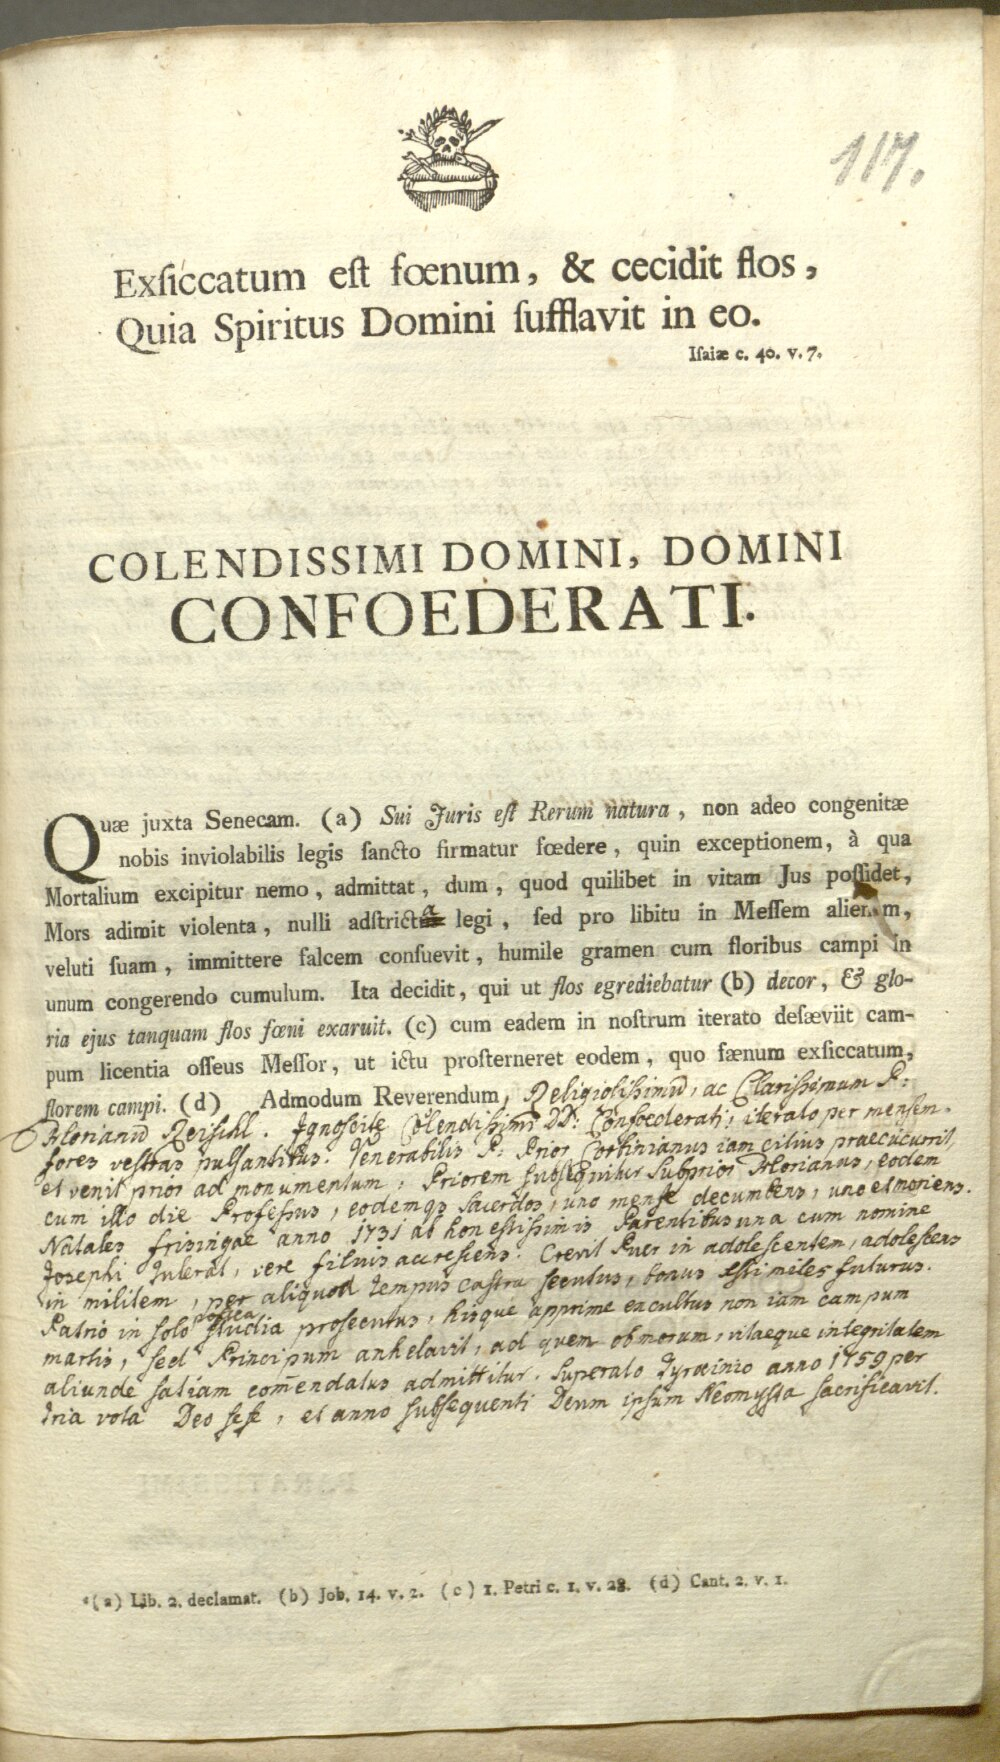 117.
Exſiccatum eſt fœnum, & cecidit flos,
Quia Spiritus Domini ſufflavit in eo.
Iſaiæ c. 40. v. 7.
COLENDISSIMI DOMINI, DOMINI
CONFOEDERATI.
Quæ juxta Senecam. (a) Sui Juris eſt Rerum natura, non adeo congenitæ
nobis inviolabilis legis ſancto firmatur fœdere, quin exceptionem, à qua
Mortalium excipitur nemo, admittat, dum, quod quilibet in vitam Jus poſſidet,
Mors adimit violenta, nulli adſtricta legi, ſed pro libitu in Meſſem alienam,
veluti ſuam, immittere falcem conſuevit, humile gramen cum floribus campi in
unum congerendo cumulum. Ita decidit, qui ut flos egrediebatur (b) decor, & glo-
ria ejus tanquam flos fœni exaruit. (c) cum eadem in noſtrum iterato deſæviit cam-
pum licentia oſſeus Meſſor, ut ictu proſterneret eodem, quo fænum exſiccatum,
florem campi. (d) Admodum Reverendum, Religiosissimū, ac Clarissimum P:
Florianū Reischl. Ignoscite Colendissimi DD: Confoederati, iterato per mensem
fores vestras pulsantibus. Venerabilis P: Prior Corbinianus iam citius praecucurrit,
et venit prior ad monumentum, Priorem subsequitur Subprior Florianus, eodem
cum illo die Professus, eodemqs Sacerdos, uno mense decumbens, uno et moriens.
Natales frisingae anno 1731 ab honestissimis Parentibus una cum nomine
Josephi tulerat, vere filius accrescens. Crevit Puer in adolescentem, adolescens
in militem, per aliquod tempus castra secutus, bonus Xsti miles futurus.
Patrio in solo postea studia prosecutus, hisque apprime excultus non iam campum
martis, sed Principum anhelavit, ad quem ob morum, vitaeque integritatem
aliunde satiam com̄endatus admittitur. Superato Tyrocinio anno 1759 per
tria vota Deo sese, et anno subsequenti Deum ipsum Neomysta sacrificavit.
(a) Lib. 2. declamat. (b) Job. 14. v. 2. (c) 1. Petri c. 1. v. 28. (d) Cant. 2. v. 1.